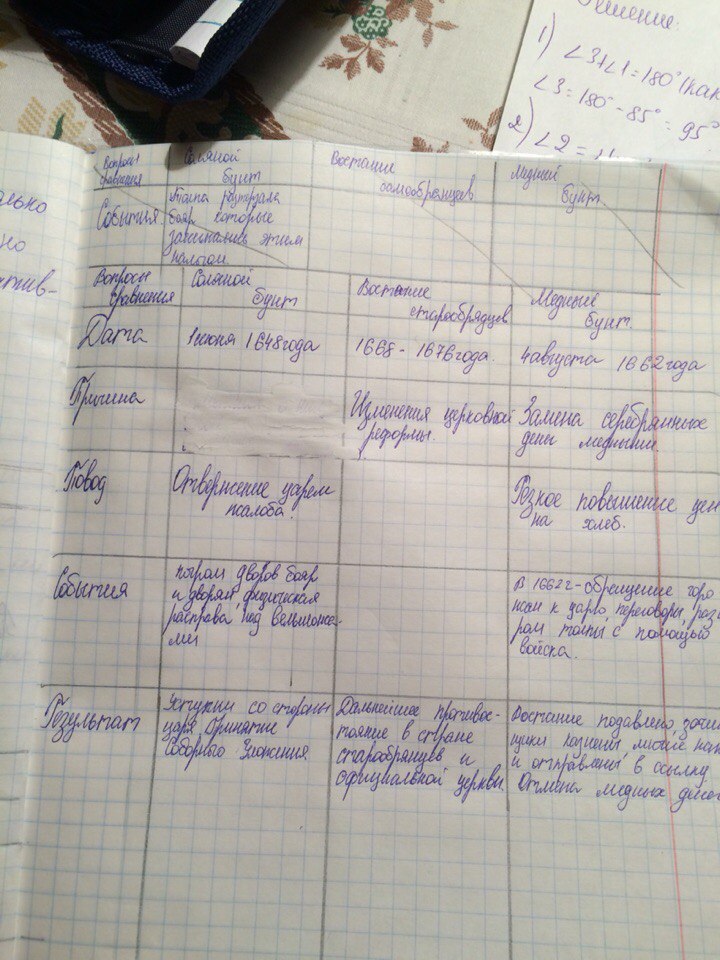 Решение:
1) ∠3+∠1=180°
∠3=180°-85°=95°
2) ∠2=
Вопросы сравнения
Соляной бунт
Восстание
Медный бунт
События
Толпа
бояр которые
этим
налогом
Вопросы сравнения
Соляной бунт
Востание старобрядцев
Медный бунт
Дата
1 июня 1648 года
1668 - 1676 года.
4 августа 1662 года
Причина
Изменения церковной
реформы.
Замена серебрянных
денег медными.
Повод
Отвержение царем
жалоба.
Резкое повышение цен
на хлеб.
События
погром дворов бояр
и дворян, физическая
расправа над вельможа-
ми
В 1662 г - обращение горо
жан к царю, переговоры, раз
ром толпы с помощью
войска.
Результат
Уступки со стороны
царя. Принятие
Соборного Уложения
Дальнейшее противос-
тояние в стране
старобрянцев и
официальной церкви.
Востание подавлено, зачин
щики казнены, многие
и отправлены в ссылку
Отмена медных денег